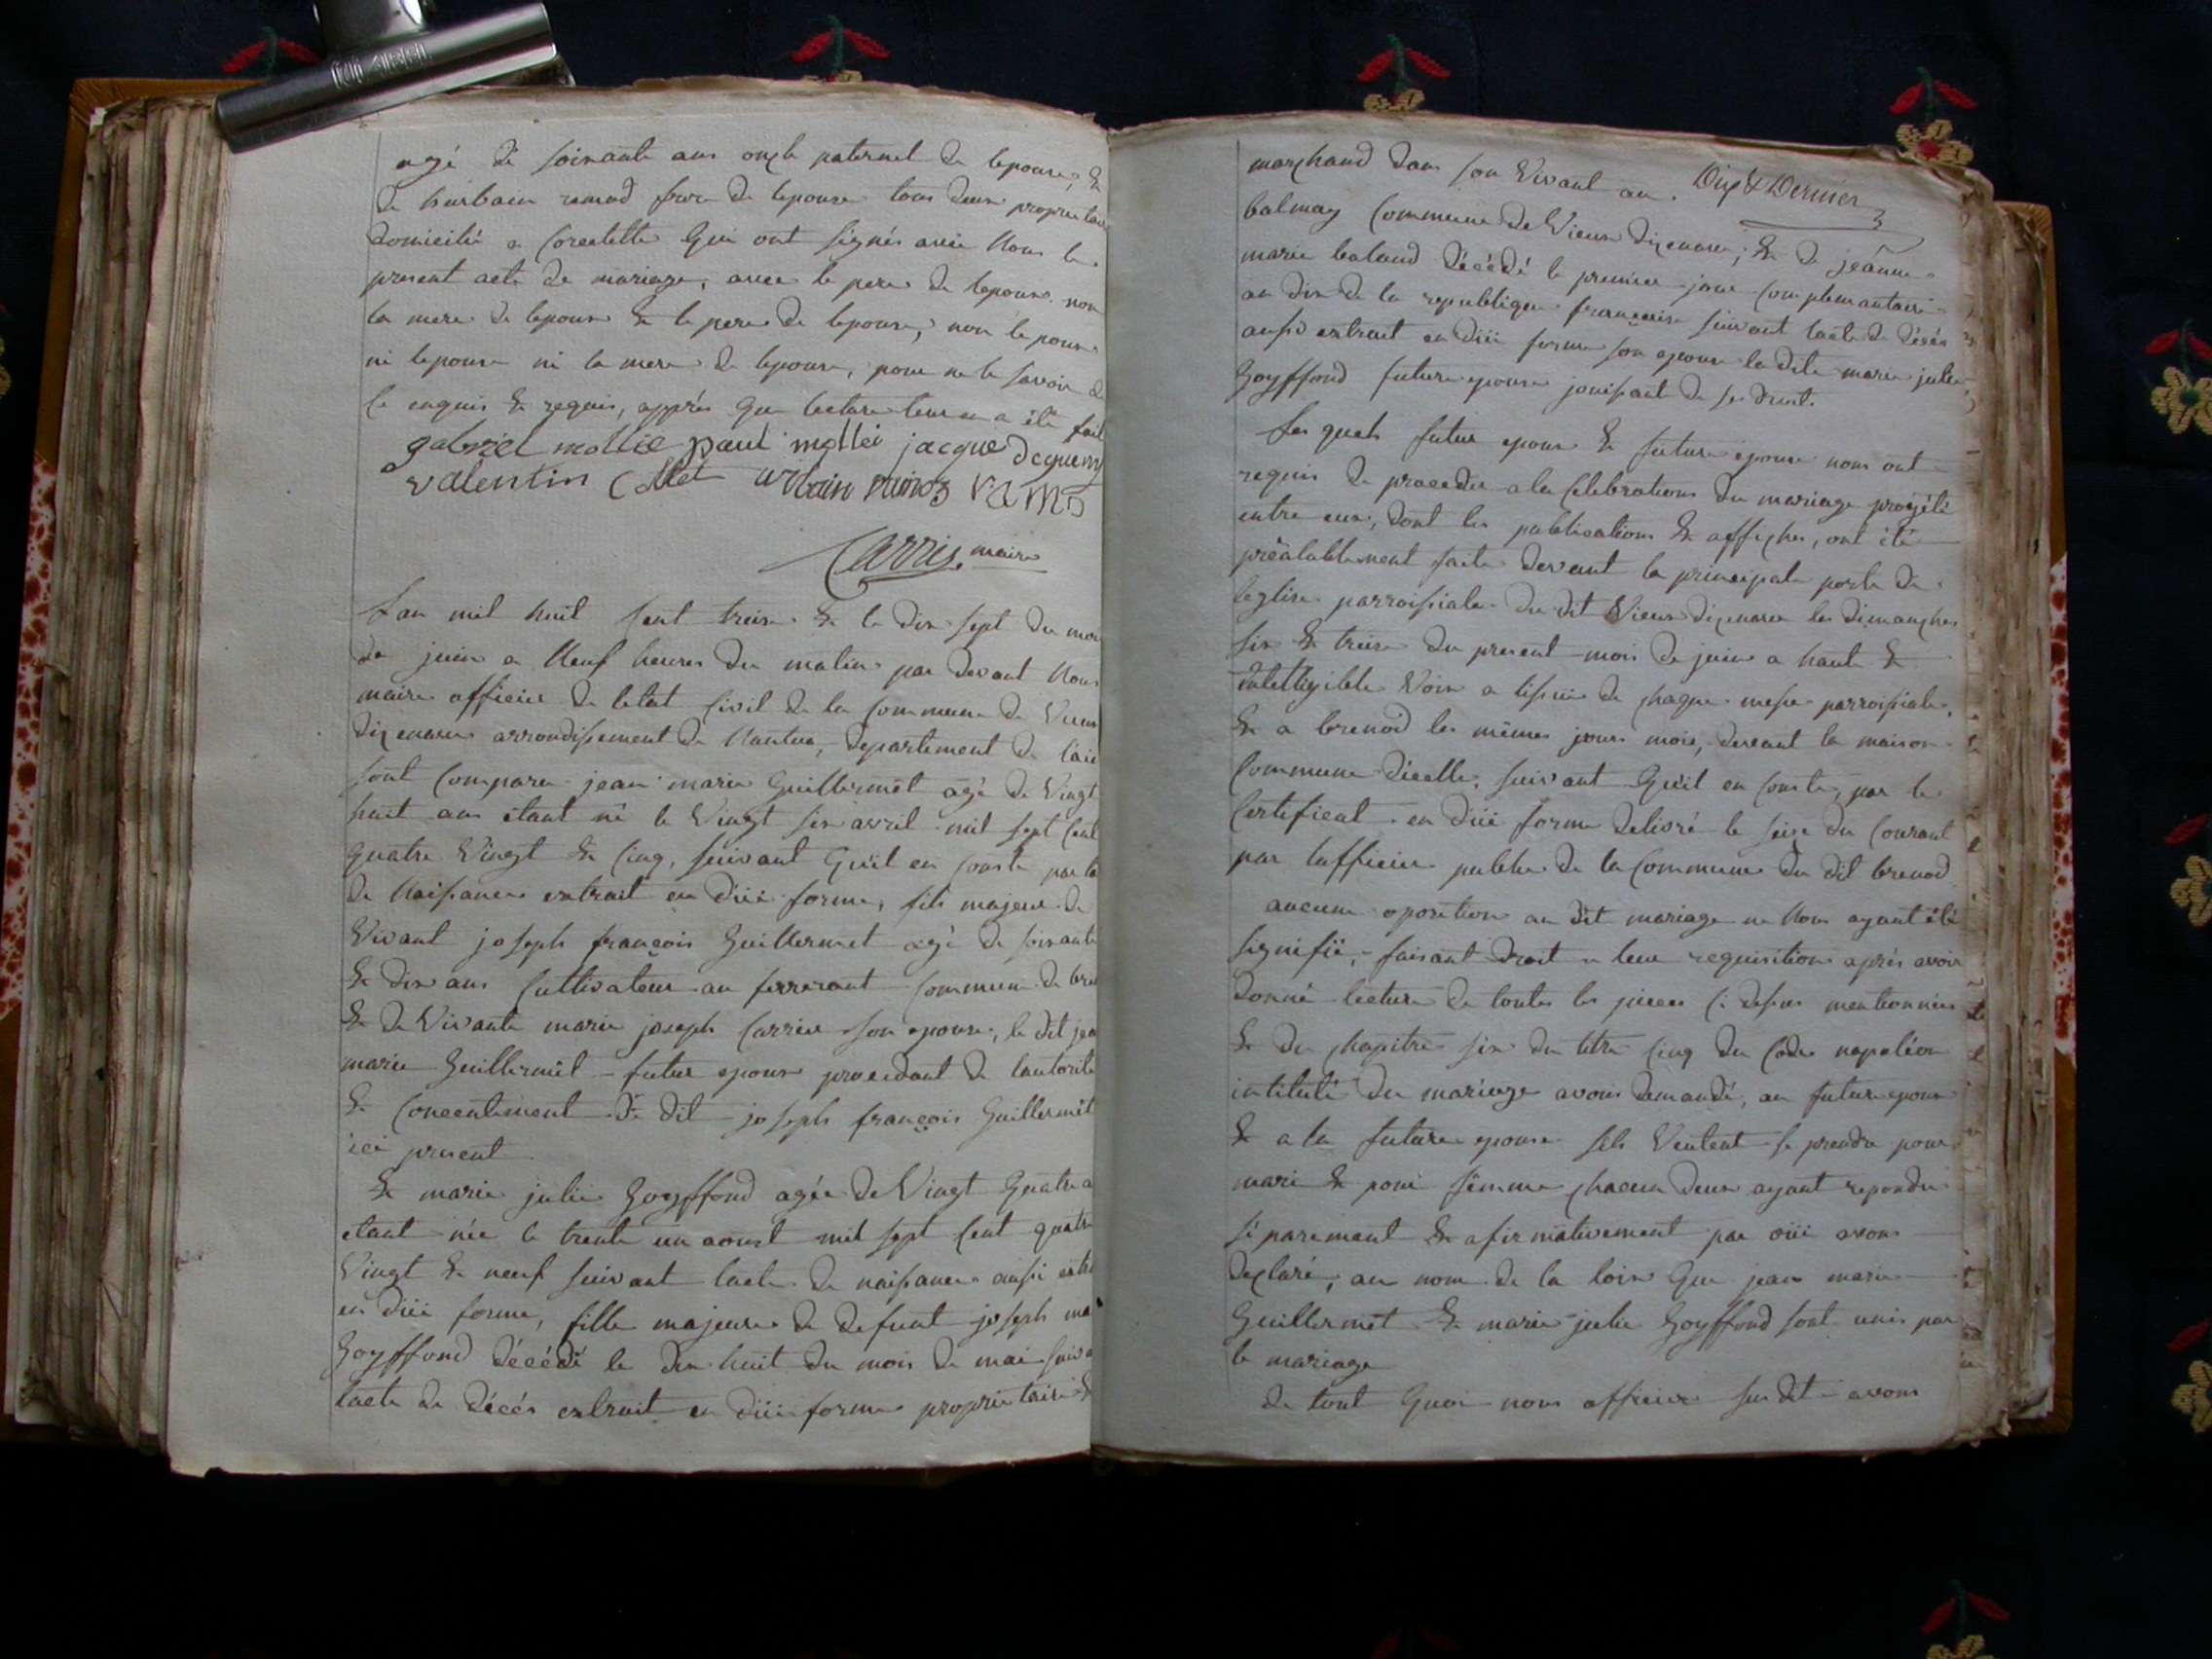 agé de soixante ans oncle paternel de lepouse, &
de hurbain ramod frere de lepouse tous deux proprietai
domicilié a Corcelette Qui ont signés avec Nous le
present acte de mariage, avec le pere de lepoux non
la mere de lepoux & le pere de lepouse, non lepoux
ni lepouse ni la mere de lepouse, pour ne le savoir de
ce enquis & requis, apprés que lecture leur en a été fait
gabriel mollie paul mollei jacque
valentin Collet urbain ramo
Carrier maire
Lan mil huit Cent treize & le dix sept du moi
de juin a Neuf heures du matin par devant Nous
maire officier de letat Civil de la Commune de Vieux
dizenave arrondissement de Nantua, departement de lain
sont Comparu jean marie Guillermet agé de Vingt
huit ans étant né le Vingt six avril mil sept Cent
quatre Vingt & Cinq, suivant Quil en Conste par la
de Naissance extrait en düe forme, fils majeur de
Vivant joseph françois Guillermet agé de soixante
& dix ans Cultivateur au ferrerant Commune de bre
& de Vivante marie joseph Carrier son epouse, le dit jea
marie Guillermet futur epoux procedant de lautorite
& Concentement de dit joseph françois Guillermet
ici present
& marie julie Goyffond agée de Vingt Quatre a
etant née le trente un aoust mil sept Cent quatre
Vingt & neuf suivant lacte de naissance aussi extr
en düe forme, fille majeure de defunt joseph ma
Goyffond décédé le dix huit du mois de mai suiva
lacte de décés extrait en düe forme proprietaire &
Dix & Dernier
marchand dans son Vivant au
balmay Commune de Vieux dizenave; & de jeanne
marie baland décédé le premier jour Complemantaire
an dix de la republique française suivant lacte de décés
aussi extrait en düe forme son epouse la dite marie julie
Goyffond future epouse jouissait de ses droit.
Les quels futur epoux & future epouse nous ont
requis de proceder a la Celebrations du mariage projété
entre eux, dont les publications & affiches, ont été
préalablement faite devant la principale porte de
leglise parroissiale du dit Vieux dizenave les dimanches
six & treize du present mois de juin a haute &
intelligible Voix a lissüe de chaque messe parroissiale,
& a brenod les mêmes jours mois, devant la maison
Commune dicelle, suivant Quil en Conste, par le
Certificat en düe forme delivré le seize du Courant
par lofficier public de la Commune du dit brenod
aucune oposition au dit mariage ne Nous ayant été
signifïé, faisant droit a leur requisition aprés avoir
donné lecture de toutes les pieces Ci dessus mentionnées
& du chapitre six du titre Cinq du Code napoléon
intitulé du mariage avons demandé, au futur epoux
& a la future epouse sils Veulent se prendre pour
mari & pour fêmme chacun deux ayant repondu
séparemant & afirmativement par oüi avons
declaré, au nom de la loix Que jean marie
Guillermet & marie julie Goyffond sont unis par
le mariage
de tout Quoi nous officier sus dit avons